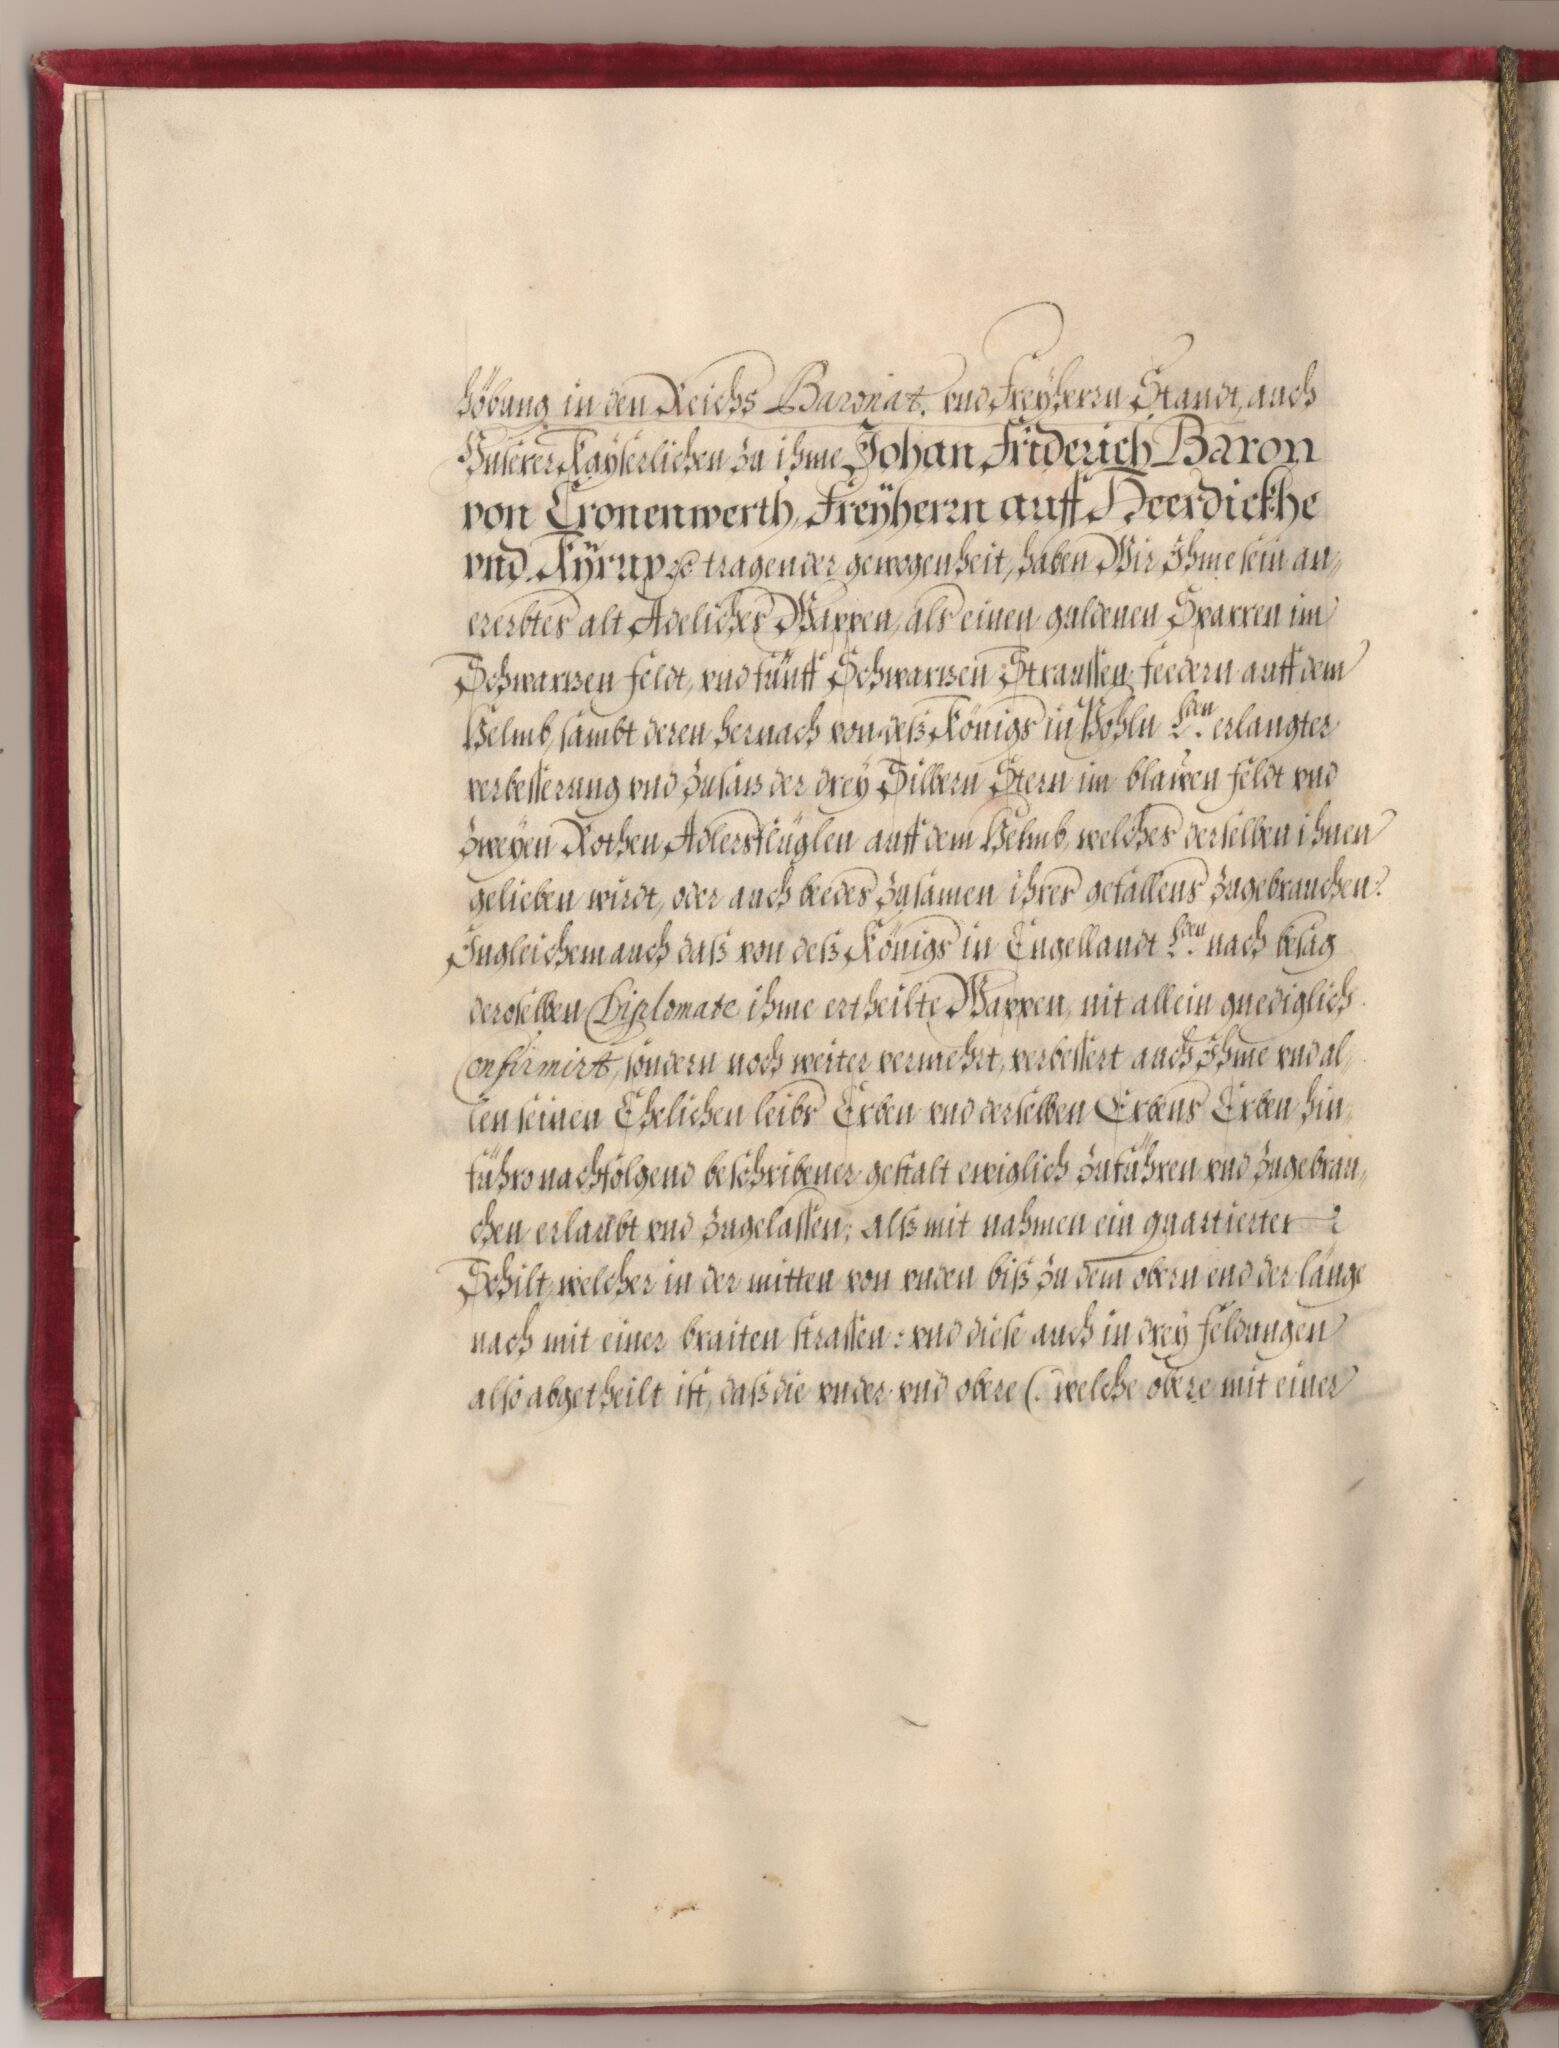 höbung in den Reichs Baronat. vnd Freyherrn Standt, auch
Vnserer Kayserlichen zu ihme Johan Friderich Baron
von Cronenwerth, Freyherrn auff Heerdickhe
vnd Kyrup &c tragender gewogenheit, haben Wir Ihme sein an-
ererbtes alt Adeliches Wappen, als einen guldenen Sparren im
Schwartzen feldt, vnd fünff Schwartzen Straussen feedern auff dem
Helmb, sambt deren hernach von deß Königs in Pohln L:den erlangter
verbesserung vnd zusatz der drey Silbern Stern im blawen feldt vnd
zweyen Rothen Adlersflüglen auff dem Helmb, welches derselben ihnen
gelieben wirdt, oder auch beedes zusamen ihres gefallens zugebrauchen.
Ingleichem auch daß von deß Königs in Engellandt L:den nach besag
deroselben Diplomate ihme ertheilte Wappen, nit allein gnediglich
Confirmirt, sondern noch weiter vermehrt, verbessert auch Ihme vnd al-
len seinen Ehelichen leibs Erben vnd derselben Erbens Erben hin-
führo nachfolgend beschribener gestalt ewiglich zuführen vnd zugebrau-
chen erlaubt vnd zugelassen; alß mit nahmen ein quartierter
Schilt, welcher in der mitten von vnden biß zu dem obern end der länge
nach mit einer braiten strassen: vnd diese auch in drey feldungen
also abgetheilt ist, daß die vnder vnd obere (: welche obere mit einer